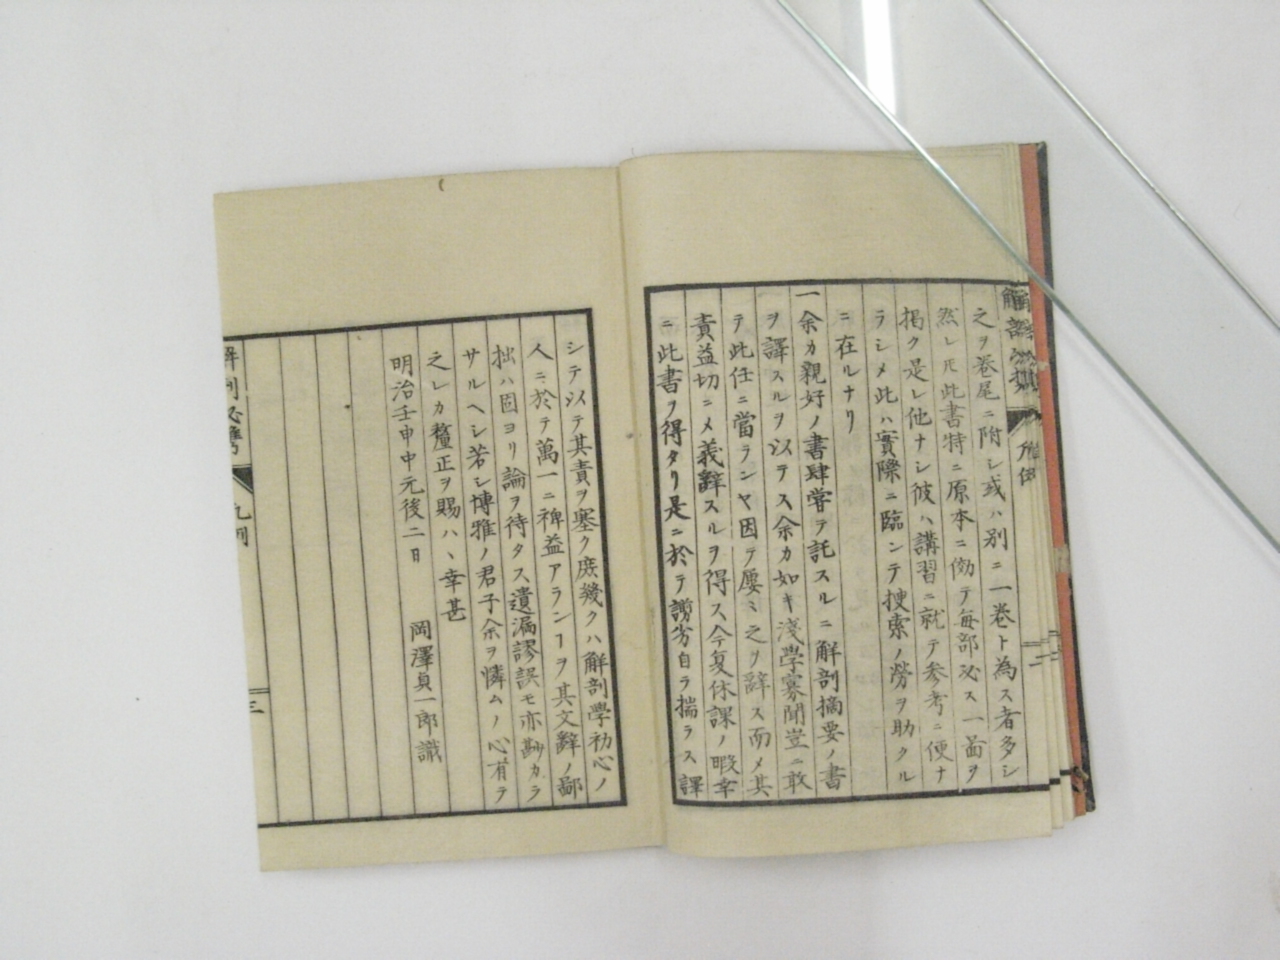 之ヲ卷尾ニ附シ或ハ別ニ一卷ト為ス者多シ
然レ𪜈此書特ニ原本ニ傚テ每部必ス一啚ヲ
掲ク是レ他ナシ彼ハ講習ニ就テ参考ニ便ナ
ラシメ此ハ實際ニ臨ンテ捜索ノ勞ヲ助クル
ニ在ルナリ
一余カ親好ノ書肆甞テ託スルニ解剖摘要ノ書
ヲ譯スルヲ以テス余カ如キ淺學寡聞豈ニ敢
テ此任ニ當ランヤ因テ屢〻之ヲ辭ス而メ其
責益切ニメ義辭スルヲ得ス今夏休課ノ暇幸
ニ此書ヲ得タリ是ニ於テ謭劣自ラ揣ラス譯
シテ以テ其責ヲ塞ク庶幾クハ解剖學初心ノ
人ニ於テ萬一ニ裨益アランヿヲ其文辭ノ鄙
拙ハ固ヨリ論ヲ待タス遺漏謬誤モ亦尠カラ
サルヘシ若シ博雅ノ君子余ヲ憐ムノ心有テ
之レカ釐正ヲ賜ハヽ幸甚
明治壬申中元後二日 岡澤貞一郎識
凡例
三